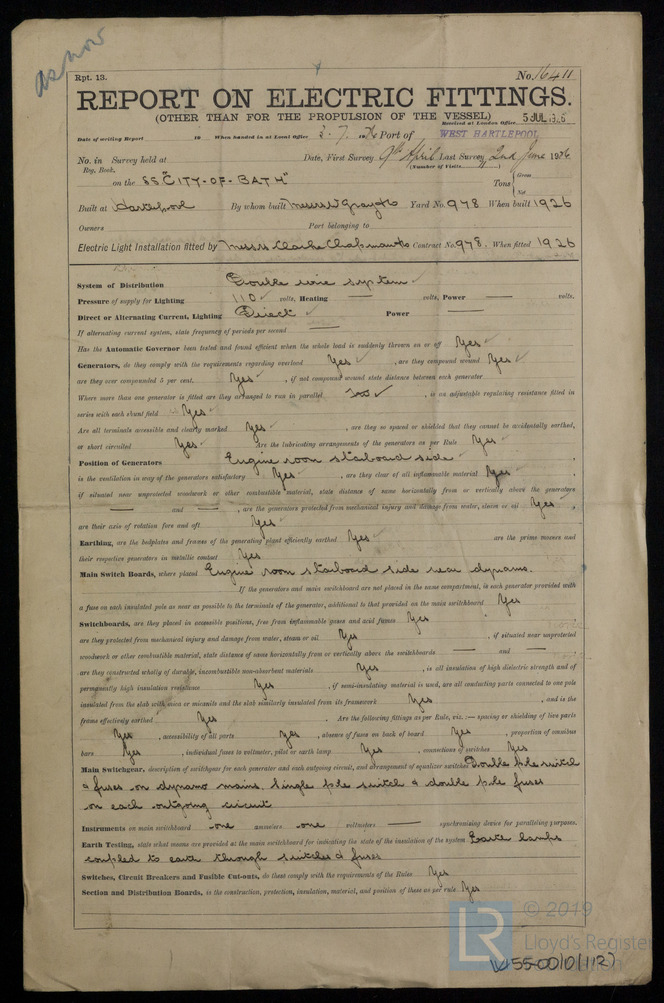 as now
Rpt. 13.
No. 16411
REPORT ON ELECTRIC FITTINGS.
(OTHER THAN FOR THE PROPULSION OF THE VESSEL)
Received at London Office 5 JUL 1926
Date of writing Report 19 When handed in at Local Office 2. 7. 1926 Port of WEST HARTLEPOOL
No. in Survey held at Date, First Survey 9th April Last Survey 2nd June 1926
Reg. Book. (Number of Visits
on the SS "CITY-OF-BATH" Tons { Gross
Net
Built at Hartlepool By whom built Messrs W Gray & Co Yard No. 978 When built 1926
Owners Port belonging to
Electric Light Installation fitted by Messrs Clarke Chapman & Co Contract No. 978. When fitted 1926
System of Distribution Double wire system
Pressure of supply for Lighting 110 volts, Heating — volts, Power — volts.
Direct or Alternating Current, Lighting Direct Power —
If alternating current system, state frequency of periods per second —
Has the Automatic Governor been tested and found efficient when the whole load is suddenly thrown on or off Yes
Generators, do they comply with the requirements regarding overload Yes , are they compound wound Yes
are they over compounded 5 per cent. Yes , if not compound wound state distance between each generator
Where more than one generator is fitted are they arranged to run in parallel , is an adjustable regulating resistance fitted in
series with each shunt field Yes
Are all terminals accessible and clearly marked Yes , are they so spaced or shielded that they cannot be accidentally earthed,
or short circuited Yes Are the lubricating arrangements of the generators as per Rule Yes
Position of Generators Engine room starboard side
is the ventilation in way of the generators satisfactory Yes , are they clear of all inflammable material Yes
if situated near unprotected woodwork or other combustible material, state distance of same horizontally from or vertically above the generators
— and — , are the generators protected from mechanical injury and damage from water, steam or oil Yes
are their axis of rotation fore and aft Yes
Earthing, are the bedplates and frames of the generating plant efficiently earthed Yes are the prime movers and
their respective generators in metallic contact Yes
Main Switch Boards, where placed Engine room starboard side near dynamo.
If the generators and main switchboard are not placed in the same compartment, is each generator provided with
a fuse on each insulated pole as near as possible to the terminals of the generator, additional to that provided on the main switchboard Yes
Switchboards, are they placed in accessible positions, free from inflammable gases and acid fumes Yes
are they protected from mechanical injury and damage from water, steam or oil Yes , if situated near unprotected
woodwork or other combustible material, state distance of same horizontally from or vertically above the switchboards — and —
are they constructed wholly of durable, incombustible non-absorbent materials Yes , is all insulation of high dielectric strength and of
permanently high insulation resistance Yes , if semi-insulating material is used, are all conducting parts connected to one pole
insulated from the slab with mica or micanite and the slab similarly insulated from its framework Yes , and is the
frame effectively earthed Yes . Are the following fittings as per Rule, viz.:— spacing or shielding of live parts
Yes , accessibility of all parts Yes , absence of fuses on back of board Yes , proportion of omnibus
bars Yes , individual fuses to voltmeter, pilot or earth lamp. Yes , connections of switches Yes
Main Switchgear, description of switchgear for each generator and each outgoing circuit, and arrangement of equalizer switches Double pole switch
& fuses on dynamo mains. Single pole switch & double pole fuses
on each outgoing circuit
Instruments on main switchboard one ammeters one voltmeters — synchronising device for paralleling purposes.
Earth Testing, state what means are provided at the main switchboard for indicating the state of the insulation of the system Earth lamps
coupled to earth through switches & fuses
Switches, Circuit Breakers and Fusible Cut-outs, do these comply with the requirements of the Rules Yes
Section and Distribution Boards, is the construction, protection, insulation, material, and position of these as per rule Yes
LR © 2019
Lloyd's Register